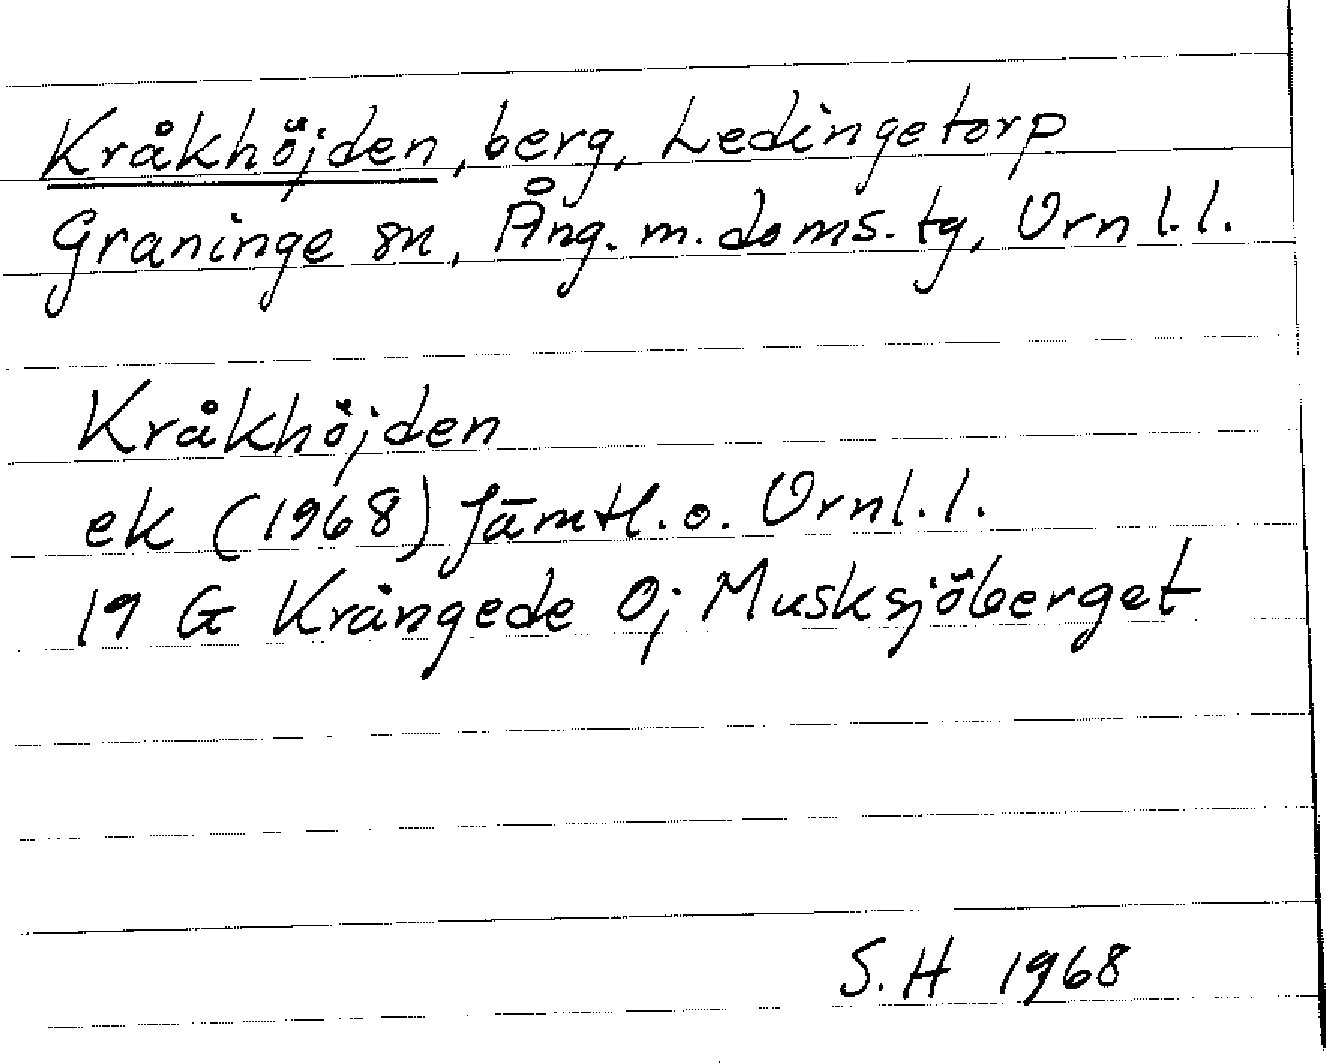 Kråkhöjden, berg, Ledingetorp
Graninge sn, Ång. m. doms. tg, Vrnl.l.
Kråkhöjden
ek (1968) Jämtl. o. Vrnl.l.
19 G Krångede O; Musksjöberget
S.H 1968